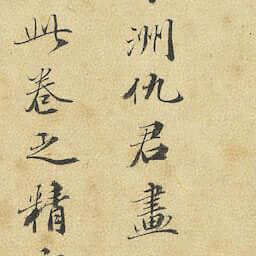 洲仇君畫
此卷之精